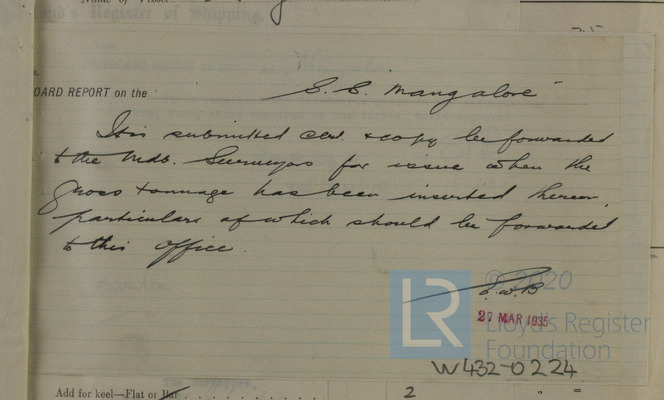 Name of Vessel
Lloyd's Register of Shipping.
OARD REPORT on the S.S. Mangalore
It is submitted Cert. & copy be forwarded
to the Mdb. Surveyors for issue when the
gross tonnage has been inserted herein,
particulars of which should be forwarded
to this office.
© 2020
27 MAR 1935
LR
Lloyd's Register
Foundation
W432-0224
Add for keel—Flat or Bar 2 " =